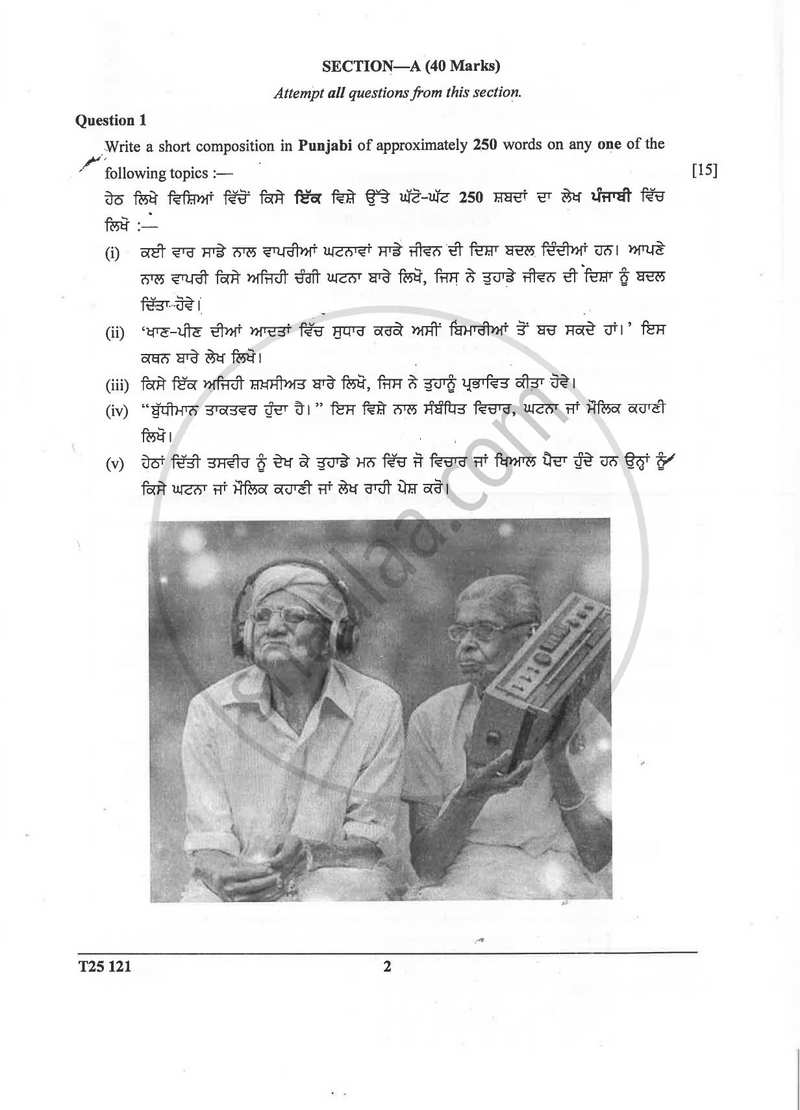 SECTION—A (40 Marks)
Attempt all questions from this section.
Question 1
Write a short composition in Punjabi of approximately 250 words on any one of the
following topics :—
[15]
ਹੇਠ ਲਿਖੇ ਵਿਸ਼ਿਆਂ ਵਿੱਚੋਂ ਕਿਸੇ ਇੱਕ ਵਿਸ਼ੇ ਉੱਤੇ ਘੱਟੋ-ਘੱਟ 250 ਸ਼ਬਦਾਂ ਦਾ ਲੇਖ ਪੰਜਾਬੀ ਵਿੱਚ
ਲਿਖੋ :—
(i) ਕਈ ਵਾਰ ਸਾਡੇ ਨਾਲ ਵਾਪਰੀਆਂ ਘਟਨਾਵਾਂ ਸਾਡੇ ਜੀਵਨ ਦੀ ਦਿਸ਼ਾ ਬਦਲ ਦਿੰਦੀਆਂ ਹਨ। ਆਪਣੇ
ਨਾਲ ਵਾਪਰੀ ਕਿਸੇ ਅਜਿਹੀ ਚੰਗੀ ਘਟਨਾ ਬਾਰੇ ਲਿਖੋ, ਜਿਸ ਨੇ ਤੁਹਾਡੇ ਜੀਵਨ ਦੀ ਦਿਸ਼ਾ ਨੂੰ ਬਦਲ
ਦਿੱਤਾ ਹੋਵੇ।
(ii) ‘ਖਾਣ-ਪੀਣ ਦੀਆਂ ਆਦਤਾਂ ਵਿੱਚ ਸੁਧਾਰ ਕਰਕੇ ਅਸੀਂ ਬਿਮਾਰੀਆਂ ਤੋਂ ਬਚ ਸਕਦੇ ਹਾਂ।’ ਇਸ
ਕਥਨ ਬਾਰੇ ਲੇਖ ਲਿਖੋ।
(iii) ਕਿਸੇ ਇੱਕ ਅਜਿਹੀ ਸ਼ਖ਼ਸੀਅਤ ਬਾਰੇ ਲਿਖੋ, ਜਿਸ ਨੇ ਤੁਹਾਨੂੰ ਪ੍ਰਭਾਵਿਤ ਕੀਤਾ ਹੋਵੇ।
(iv) “ਬੁੱਧੀਮਾਨ ਤਾਕਤਵਰ ਹੁੰਦਾ ਹੈ।” ਇਸ ਵਿਸ਼ੇ ਨਾਲ ਸੰਬੰਧਿਤ ਵਿਚਾਰ, ਘਟਨਾ ਜਾਂ ਮੌਲਿਕ ਕਹਾਣੀ
ਲਿਖੋ।
(v) ਹੇਠਾਂ ਦਿੱਤੀ ਤਸਵੀਰ ਨੂੰ ਦੇਖ ਕੇ ਤੁਹਾਡੇ ਮਨ ਵਿੱਚ ਜੋ ਵਿਚਾਰ ਜਾਂ ਖਿਆਲ ਪੈਦਾ ਹੁੰਦੇ ਹਨ ਉਨ੍ਹਾਂ ਨੂੰ
ਕਿਸੇ ਘਟਨਾ ਜਾਂ ਮੌਲਿਕ ਕਹਾਣੀ ਜਾਂ ਲੇਖ ਰਾਹੀ ਪੇਸ਼ ਕਰੋ।
shaalaa.com
T25 121
2